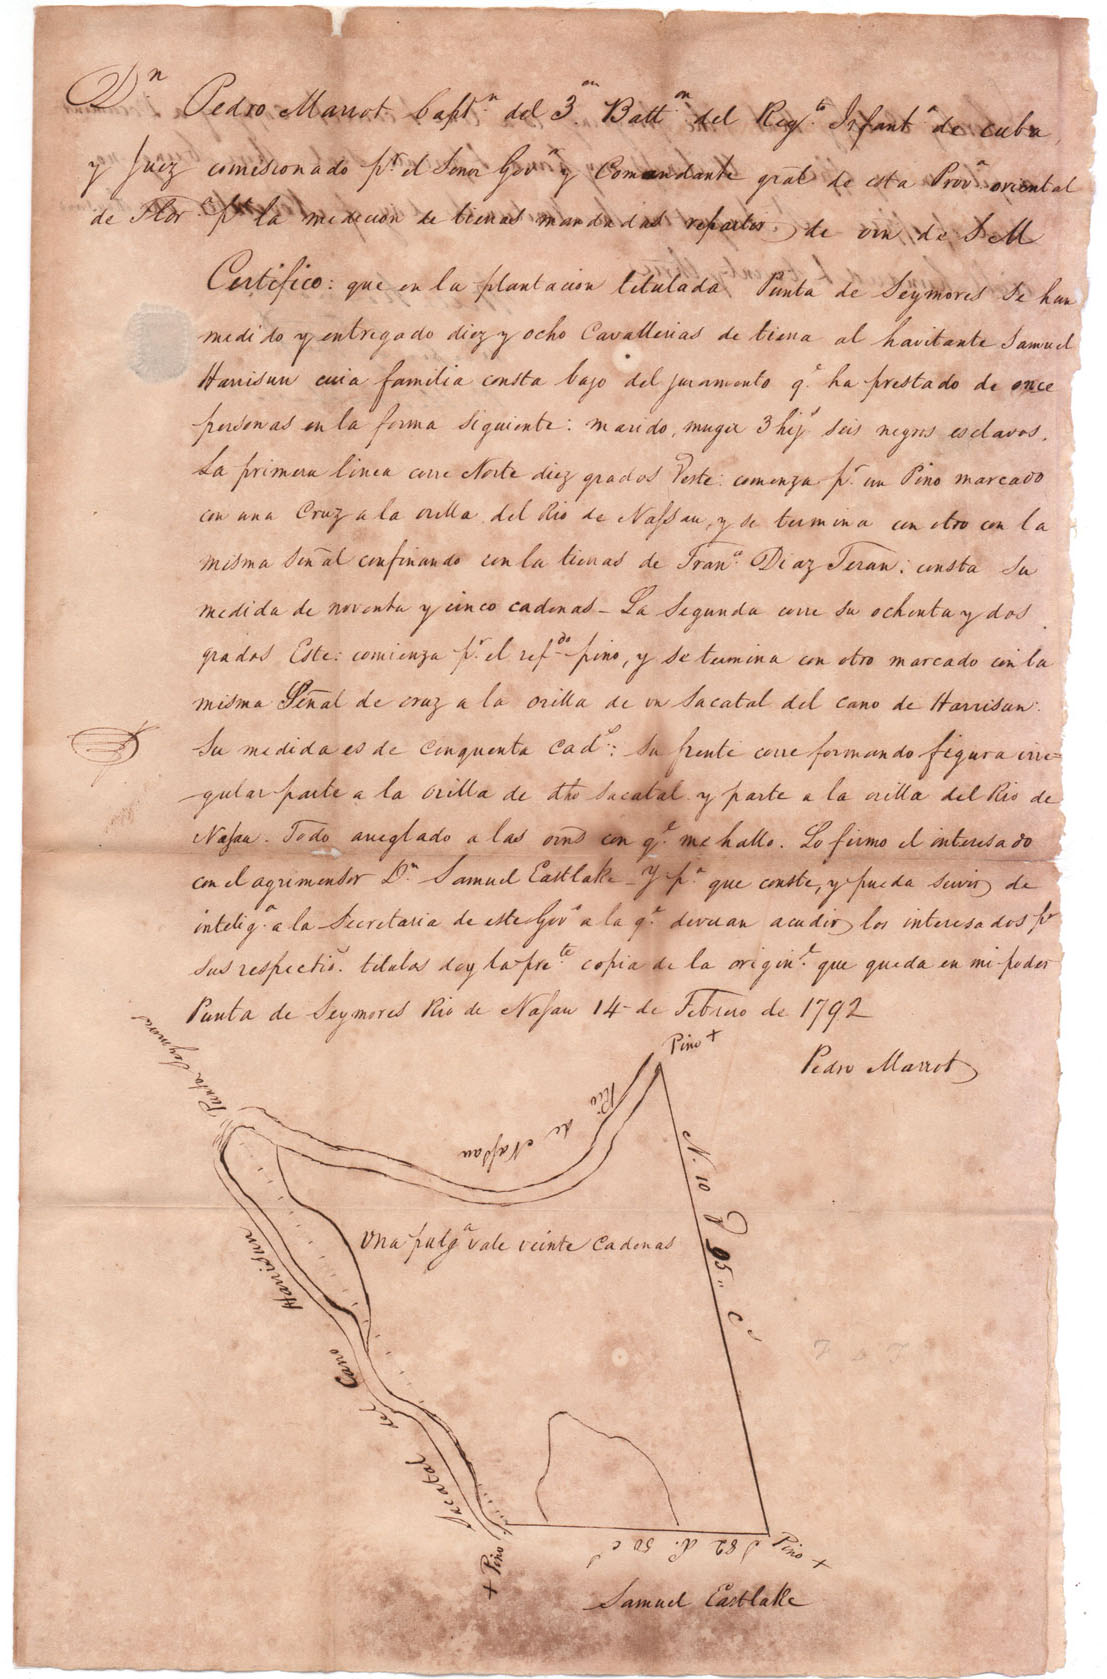 Dn Pedro Marrot Capn. del 3.er Battn. del Regto. Infanta. de Cuba,
y Juez comicionado pr. el Senor Govr. y Comandante gral de esta Prova. oriental
de Flor pa. la medicion de tierras mandadas repartir, de orn de S M
Certifico: que en la plantacion titulada Punta de Seymores se han
medido y entregado diez y ocho Cavallerias de tierra al havitante Samuel
Harrisun cuia familia consta bajo del juramento qe. ha prestado de once
personas en la forma siguiente: marido, muger 3 hijs seis negros esclavos.
La primera linea corre Norte diez grados Oeste: comenza pr. un Pino marcado
con una Cruz a la orilla del Rio de Nassau, y se termina con otro con la
misma señal confinando con la tierras de Frano. Diaz Teran: consta su
medida de noventa y cinco cadenas - La Segunda corre su ochenta y dos
grados Este: comienza pr. el refdo pino, y se termina con otro marcado con la
misma Señal de cruz a la orilla de un Sacatal del cano de Harrisun.
Su medida es de cinquenta cads: Su frente corre formando figura irre=
gular parte a la orilla de dho Sacatal y parte a la orilla del Rio de
Nasau. Todo arreglado a las orns con qe. me hallo. Lo firmo el interesado
con el agrimensor Dn. Samuel Eastlake - Y pa. que conste, y pueda servir de
inteliga. a la Secretaria de este Govo a la qe. deveran acudir los interesados pr
sus respectivs. titulos doy la preste. copia de la originl. que queda en mi poder
Punta de Seymores Rio de Nasau 14 de Febrero de 1792
Pedro Marrot
Pino +
Punta Seymores
Rio de Nassau
N. 10 O 95 " Cs
Una pulga vale veinte cadenas
Sacatal del Cano Harrisun
S 82 E. 50 Cs
Pino +
+ Pino
Samuel Eastlake